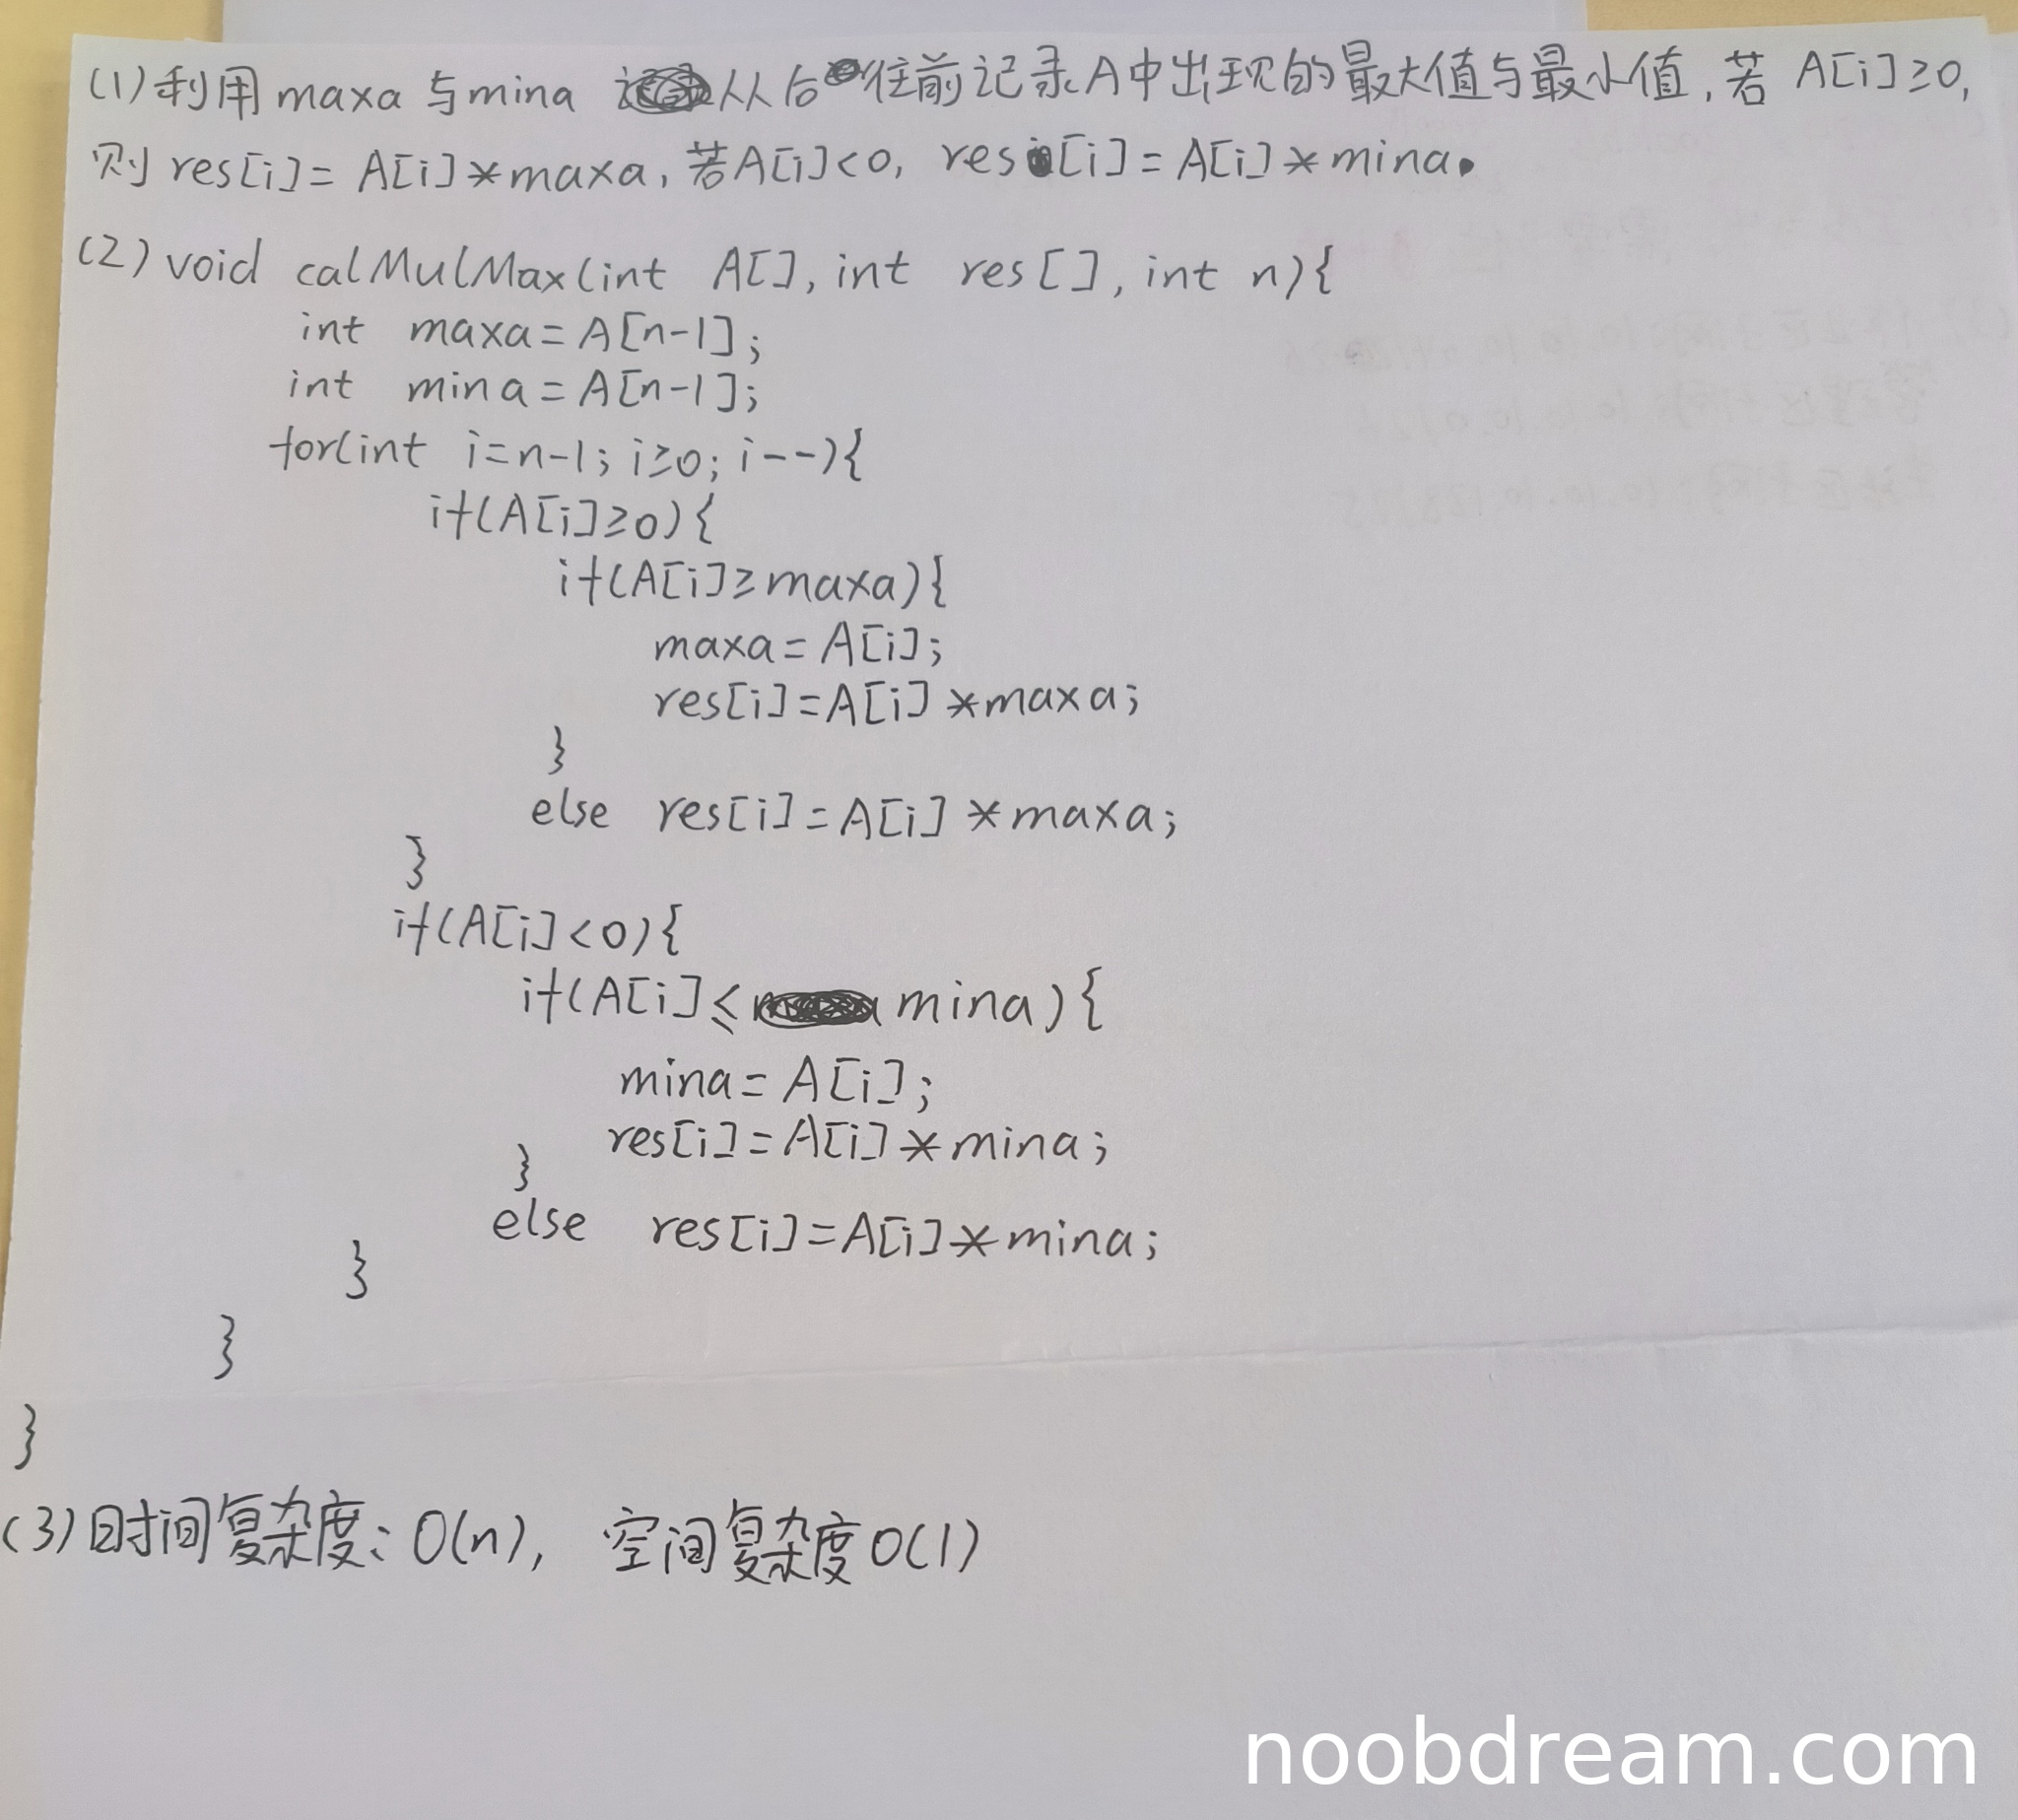 (1)利用maxa与mina 从后往前记录A中出现的最大值与最小值,若 A[i]≥0,
则res[i]= A[i]*maxa,若A[i]<0, res[i]=A[i]*mina.
(2) void calMulMax(int A[], int res[], int n){
int maxa=A[n-1];
int mina=A[n-1];
for(int i=n-1; i≥0; i--){
if(A[i]≥0){
if(A[i]≥maxa){
maxa=A[i];
res[i]=A[i]*maxa;
}
else res[i]=A[i]*maxa;
}
if(A[i]<0){
if(A[i]≤mina){
mina=A[i];
res[i]=A[i]*mina;
}
else res[i]=A[i]*mina;
}
}
}
(3)时间复杂度:O(n), 空间复杂度O(1)
noobdream.com